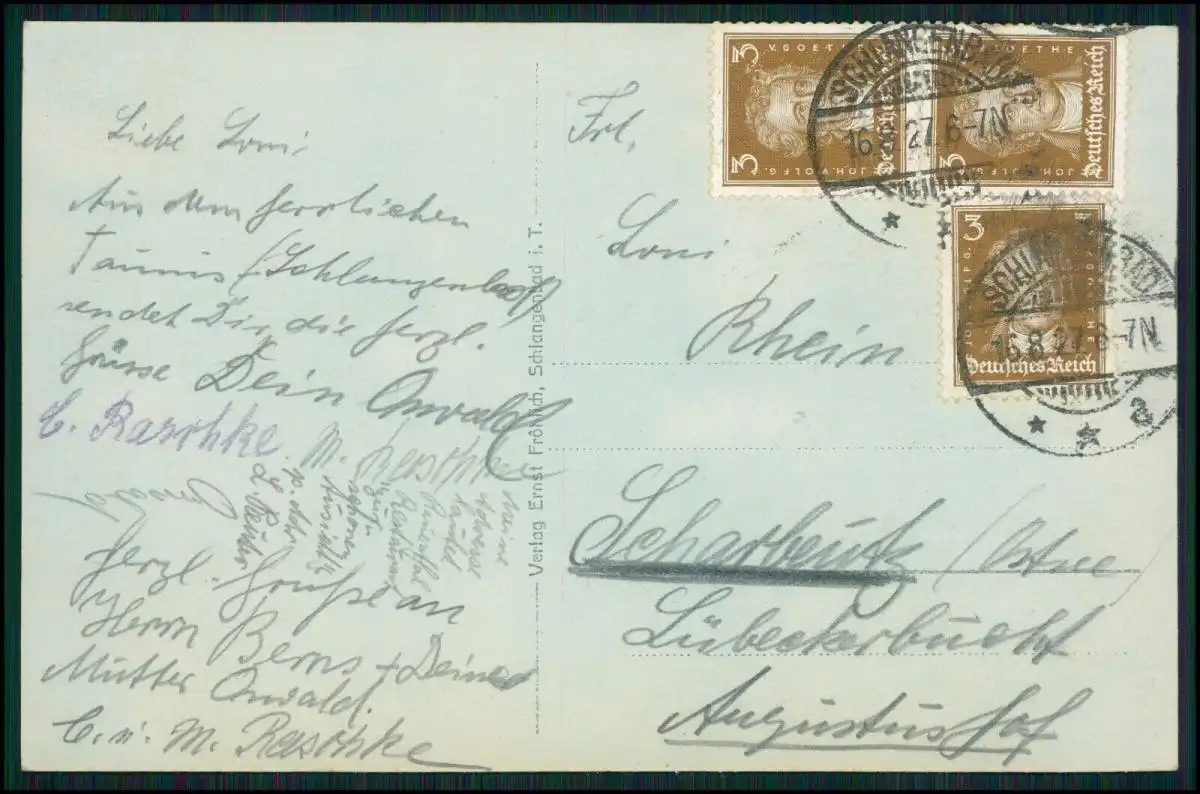 Liebe Loni
Aus dem herrlichen
Taunus / Schlangenbad
sendet Dir die herzl.
Grüsse Dein Oswald
C. Raschke
M. Raschke
Meine
Adresse
lautet
Rheinthal
Restaurant
zur
schönen
Aussicht
p. Adr.
L.
Herzl. Grüße an
Herrn Berns + Deine
Mutter Oswald.
C. u. M. Raschke
Verlag Ernst Fröhlich, Schlangenbad i. T.
3
V. GOETHE
JOH. WOLFG.
3
Deutsches Reich
GOETHE
3
JOH. WOLFG.
Deutsches Reich
SCHLANGENBAD
16.8.27.6-7N
3
Deutsches Reich
SCHLANGENBAD
16.8.27.6-7N
a
Frl,
Loni
Rhein
Scharbeutz / Ostsee
Lübeckerbucht
Augustushof